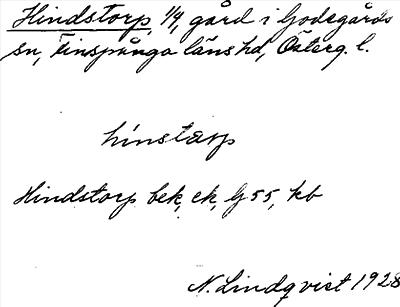 Hindstorp, 1/4, gård i Godegårds
sn, Finspånga läns hd, Österg. l.
hínstærp
Hindstorp bek, ek, G 55, kb
N. Lindqvist 1928